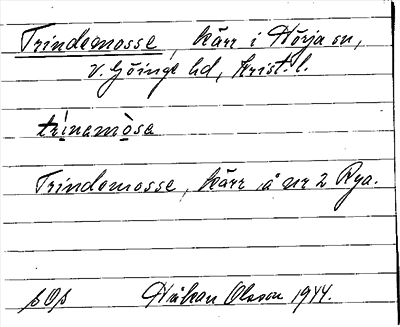 Trindemosse, kärr i Hörja sn,
V. Göinge hd, Krist. l.
trinamòsa
Trindemosse, kärr å nr 2 Rya.
pOp Håkan Olsson 1944.